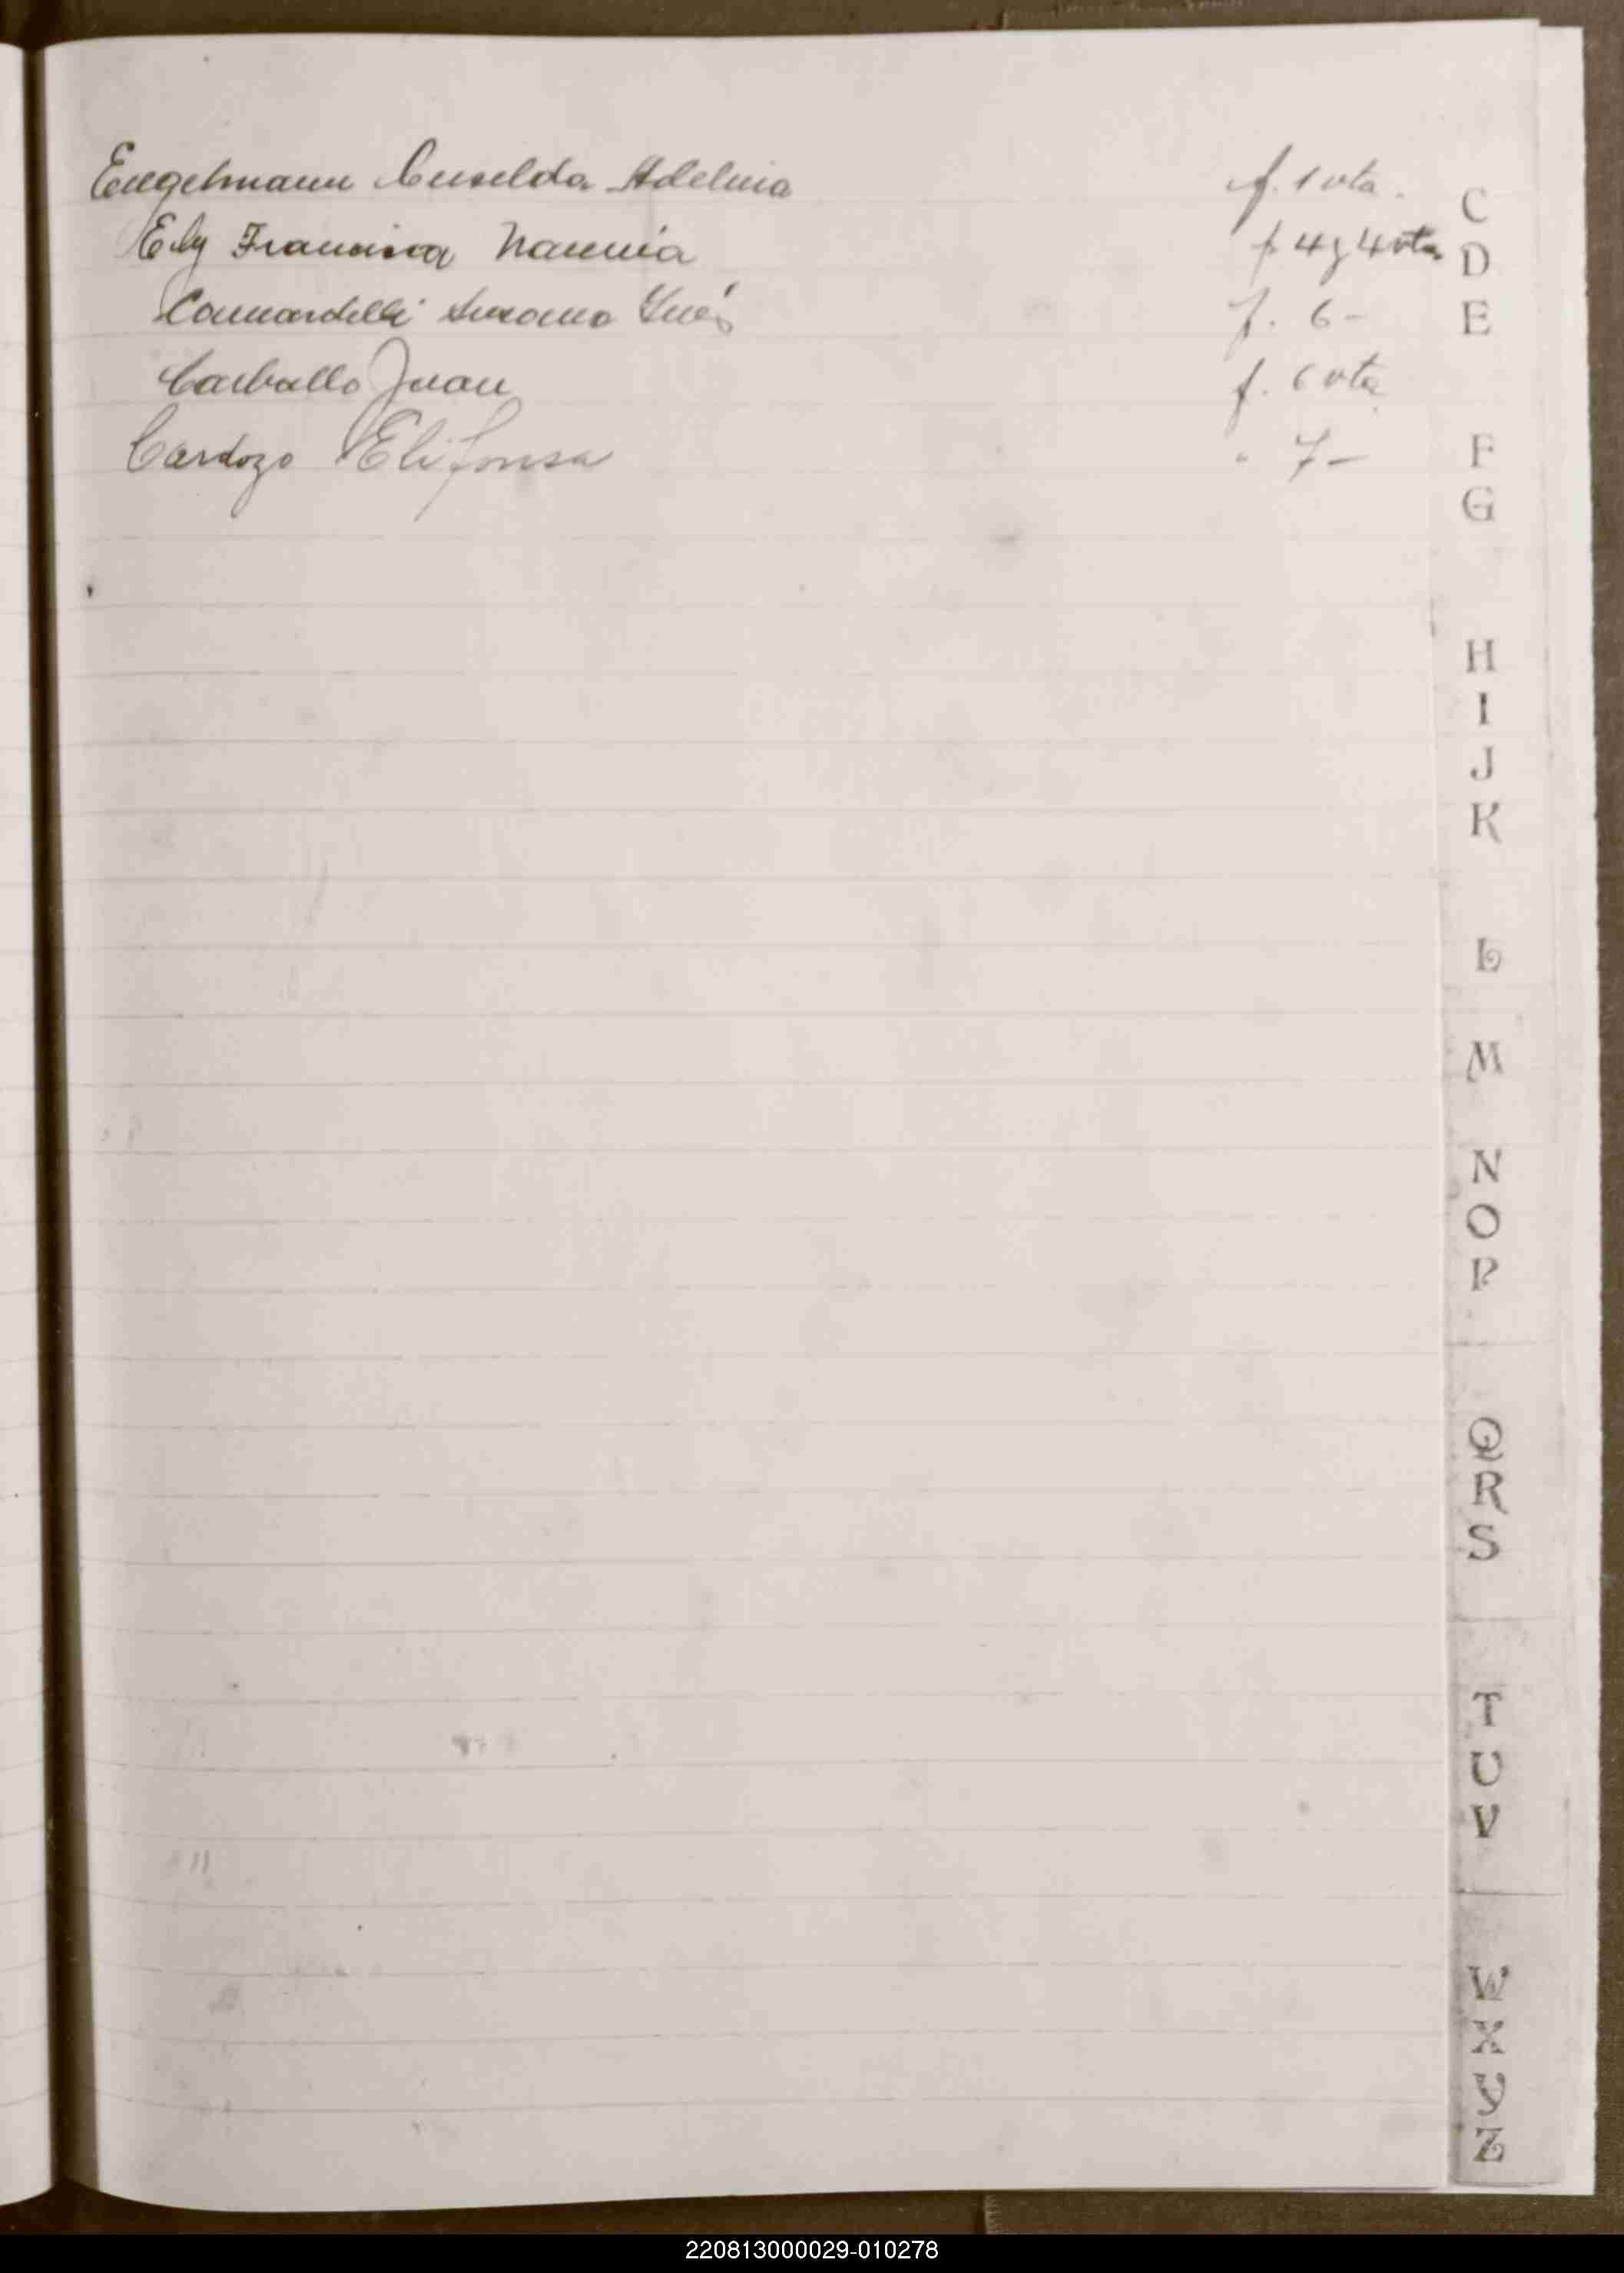 Engelmann Cuselda Adelina f. 1 vta.
Ely Francisca Naemia f 4 y 4 vta.
Connardelli Susana Inés f. 6-
Carballo Juan f. 6 vta
Cardozo Elifonsa " 7-
C
D
E
F
G
H
I
J
K
L
M
N
O
P
Q
R
S
T
U
V
W
X
Y
Z
220813000029-010278